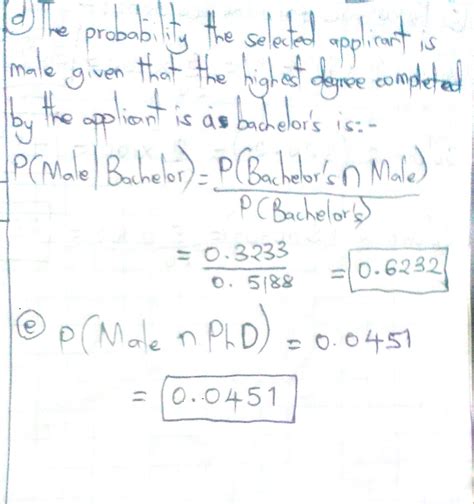 d) The probability the selected applicant is
male given that the highest degree completed
by the applicant is as bachelor's is:-
P(Male/Bachelor) = P(Bachelor's ∩ Male)
P(Bachelor's)
= 0.3233
0.5188
= 0.6232
e) P(Male ∩ PhD) = 0.0451
= 0.0451